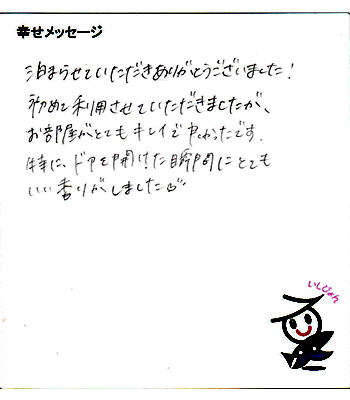 幸せメッセージ
泊まらせていただきありがとうございました!
初めて利用させていただきましたが、
お部屋がとてもキレイで良かったです.
特に、ドアを開けた瞬間にとても
いい香りがしました
いしぴょん